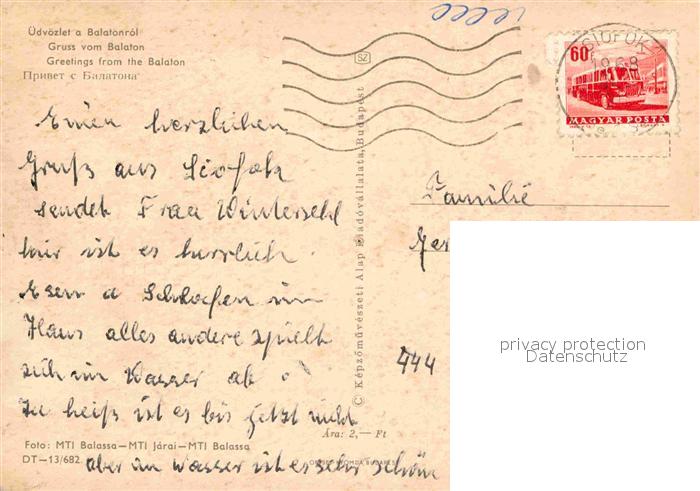 Üdvözlet a Balatonról
Gruss vom Balaton
Greetings from the Balaton
Привет с Балатона
SZ
SIÓFOK
1968
60f
MAGYAR POSTA
Einen herzlichen
Gruß aus Siofok
sendet Frau
hier ist es herrlich.
Esen a Schlafen im
Haus alles andere spielt
sich im Wasser ab.
Zu heiß ist es bis jetzt nicht
aber im Wasser ist es sehr schön
© Képzőművészeti Alap Kiadóvállalata, Budapest
Familie
444
privacy protection
Datenschutz
Ára: 2,— Ft
Foto: MTI Balassa—MTI Járai—MTI Balassa
DT—13/682.